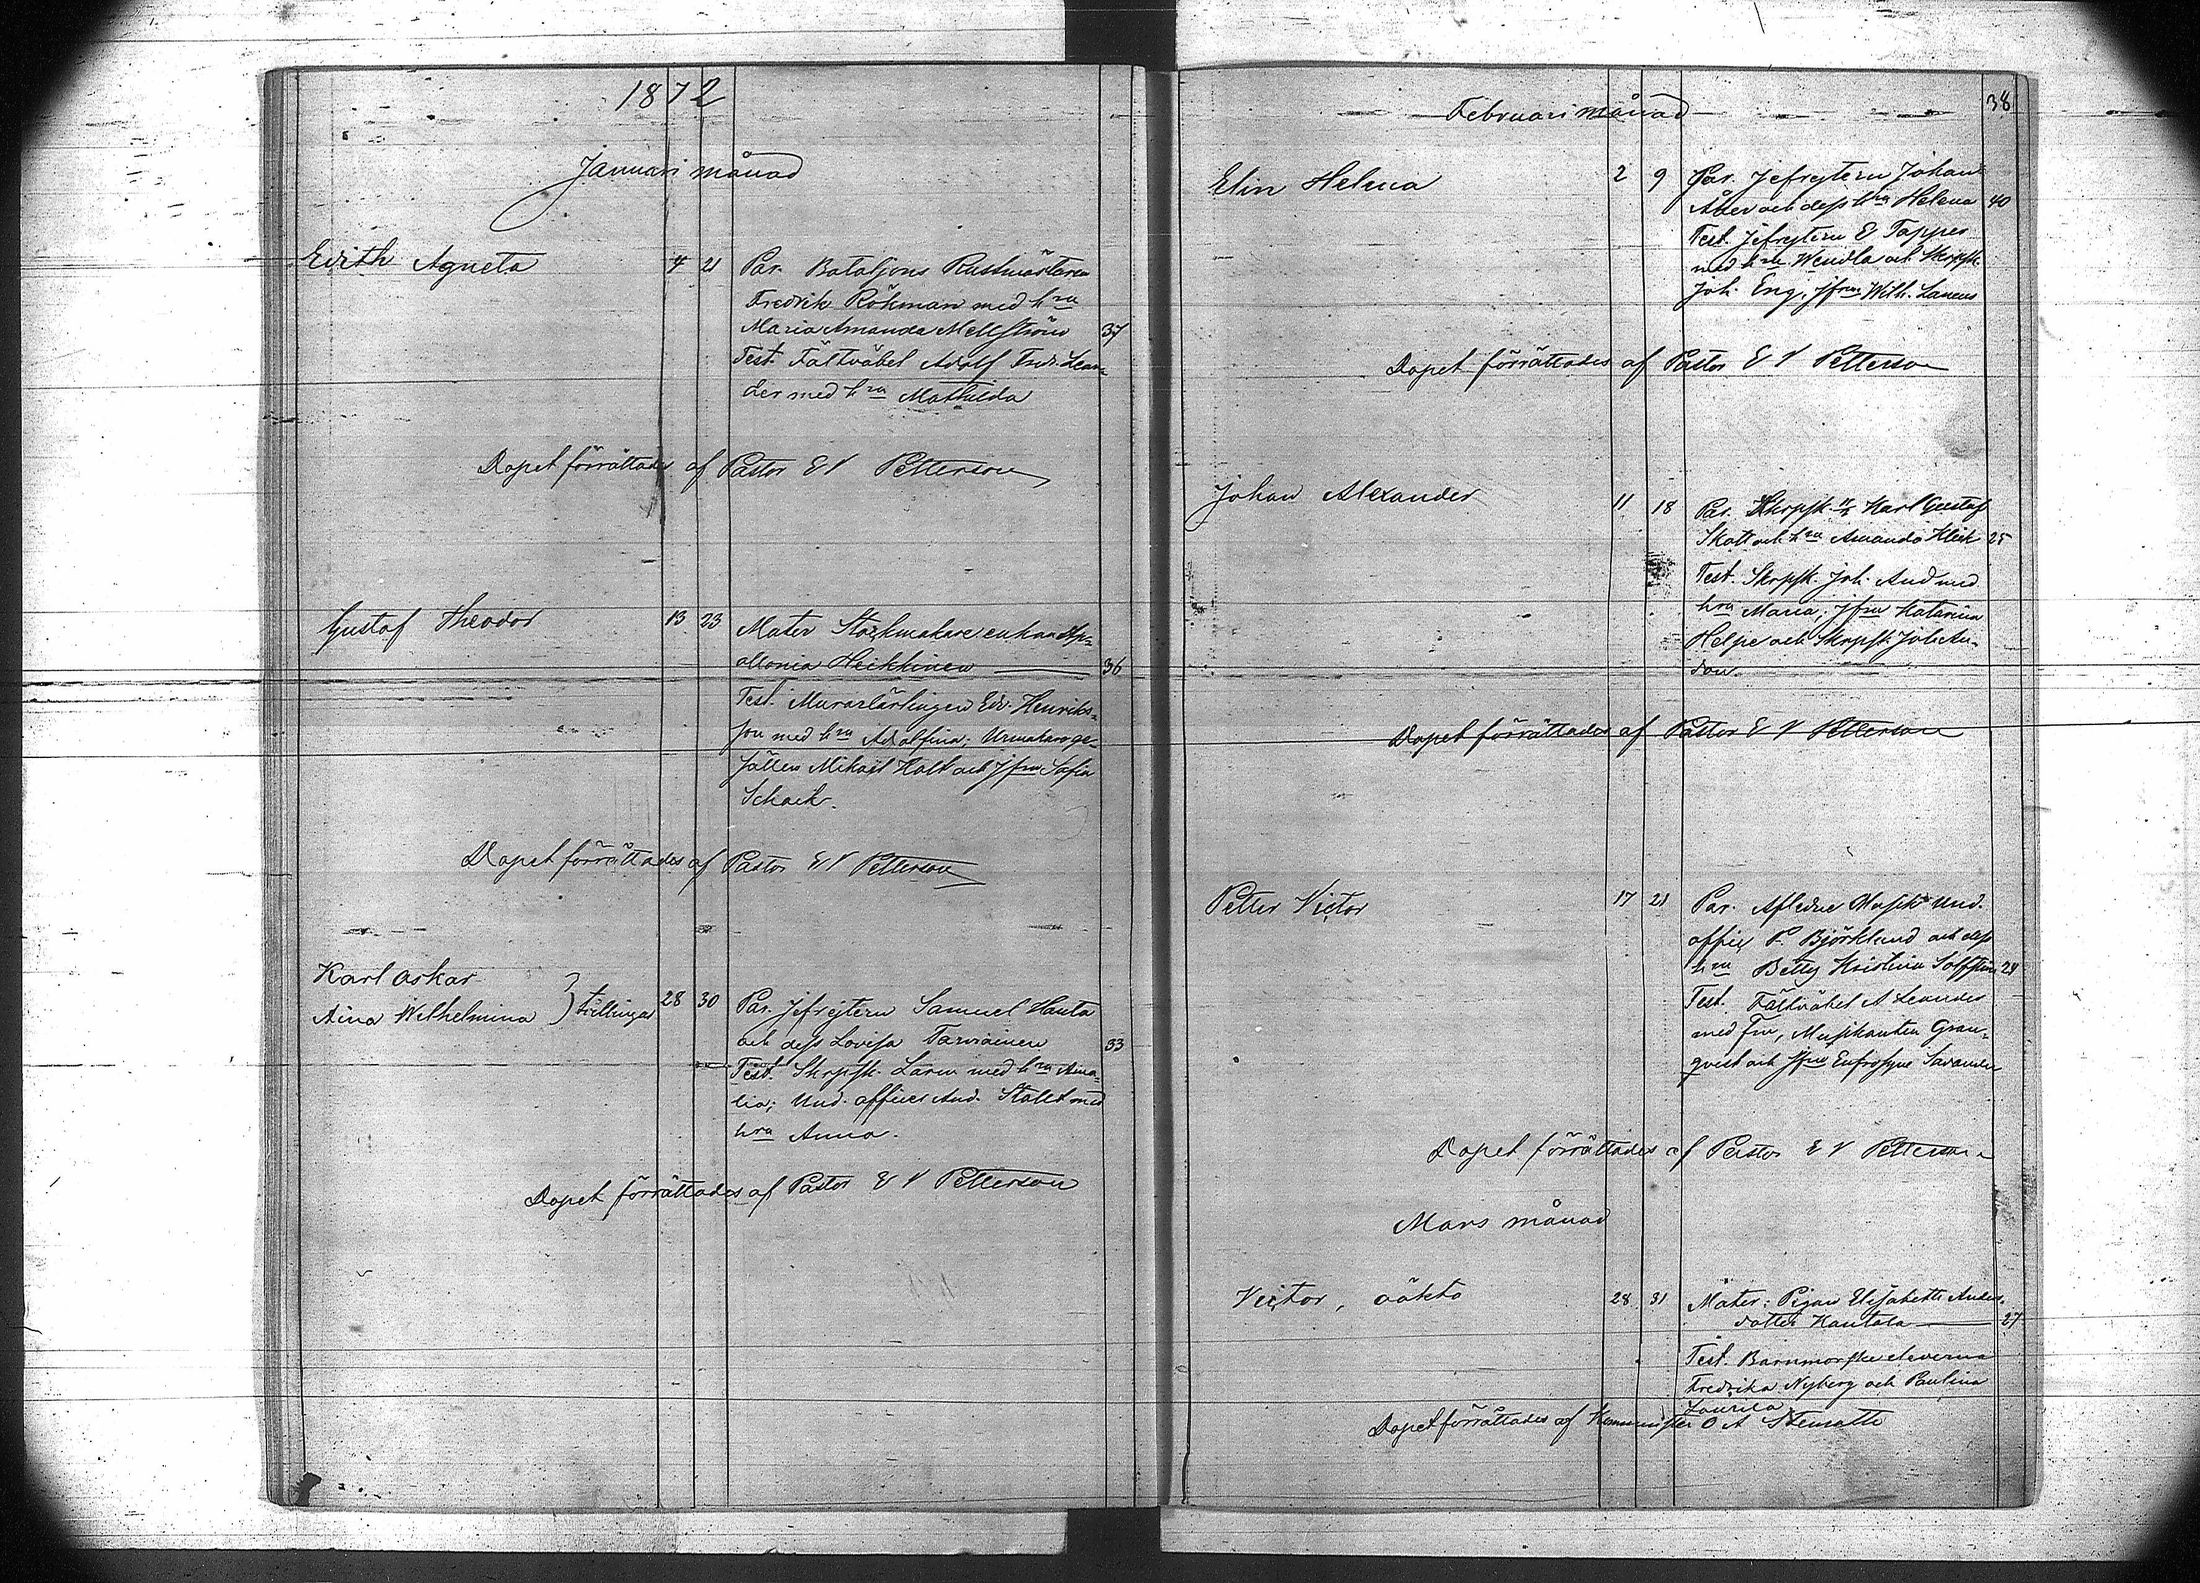 1872
Januari månad
Edith Agneta 4 21 Par. Bataljons Rustmästaren
Fredrik Rökman med hru
Maria Amanda Mellström 37
Test. Fältväbel Adolf Fredr. Lean-
der med hru Mathilda
Dopet förrättades af Pastor E V Petterson
Gustaf Theodor 13 23 Mater Stockmakare enkan Ap-
ollonia Heikkinen 36
Test. Murarlärlingen Edv. Henriks-
son med hru Adolfina; Urmakarege-
sällen Mikael Holt och Jfru Sofia
Schack.
Dopet förrättades af Pastor E V Petterson
Karl Oskar
Aina Wilhelmina } tvillingar 28 30 Par. Jefrejtern Samuel Hanta
och dess Lovisa Tarvainen 33
Test. Skrpsk. Larm med hru Ama-
lia; Und. officer And. Stålt med
hra Anna.
Dopet förrättades af Pastor E V Petterson
38
Februari månad
Elin Helena 2 9 Par. Jefrejtern Johan
och dess hra Helena 40
Test. Jefrejtern E Tapper
med hru Wendla och Skrpsk.
Joh. Eng, Jfrun Wilh.
Dopet förrättades af Pastor E V Petterson
Johan Alexander 11 18 Par. Skrpsk. Karl Gustaf
Skott och hru Amanda 25
Test. Skrpsk. Joh. And med
hra Maria; Jfru Katarina
Helpe och Skrpsk. Joh. An-
don
Dopet förrättades af Pastor E V Petterson
Petter Victor 17 21 Par. Afledne Musik Und.
offic P. Björklund och dess
hru Betty Kristina 28
Test. Fältväbel A Leander
med Fru, Musikanten Gran-
qvist och Jfru Eufrosyne
Dopet förrättades af Pastor E V Petterson
Mars månad
Victor, oäkta 28 31 Mater: Pigan Elisabeth Anders-
dotter Kantola 27
Test. Barnmorske eleverna
Fredrika Nyberg och Paulina
Laurila
Dopet förrättades af Kommunister O A Stenroth